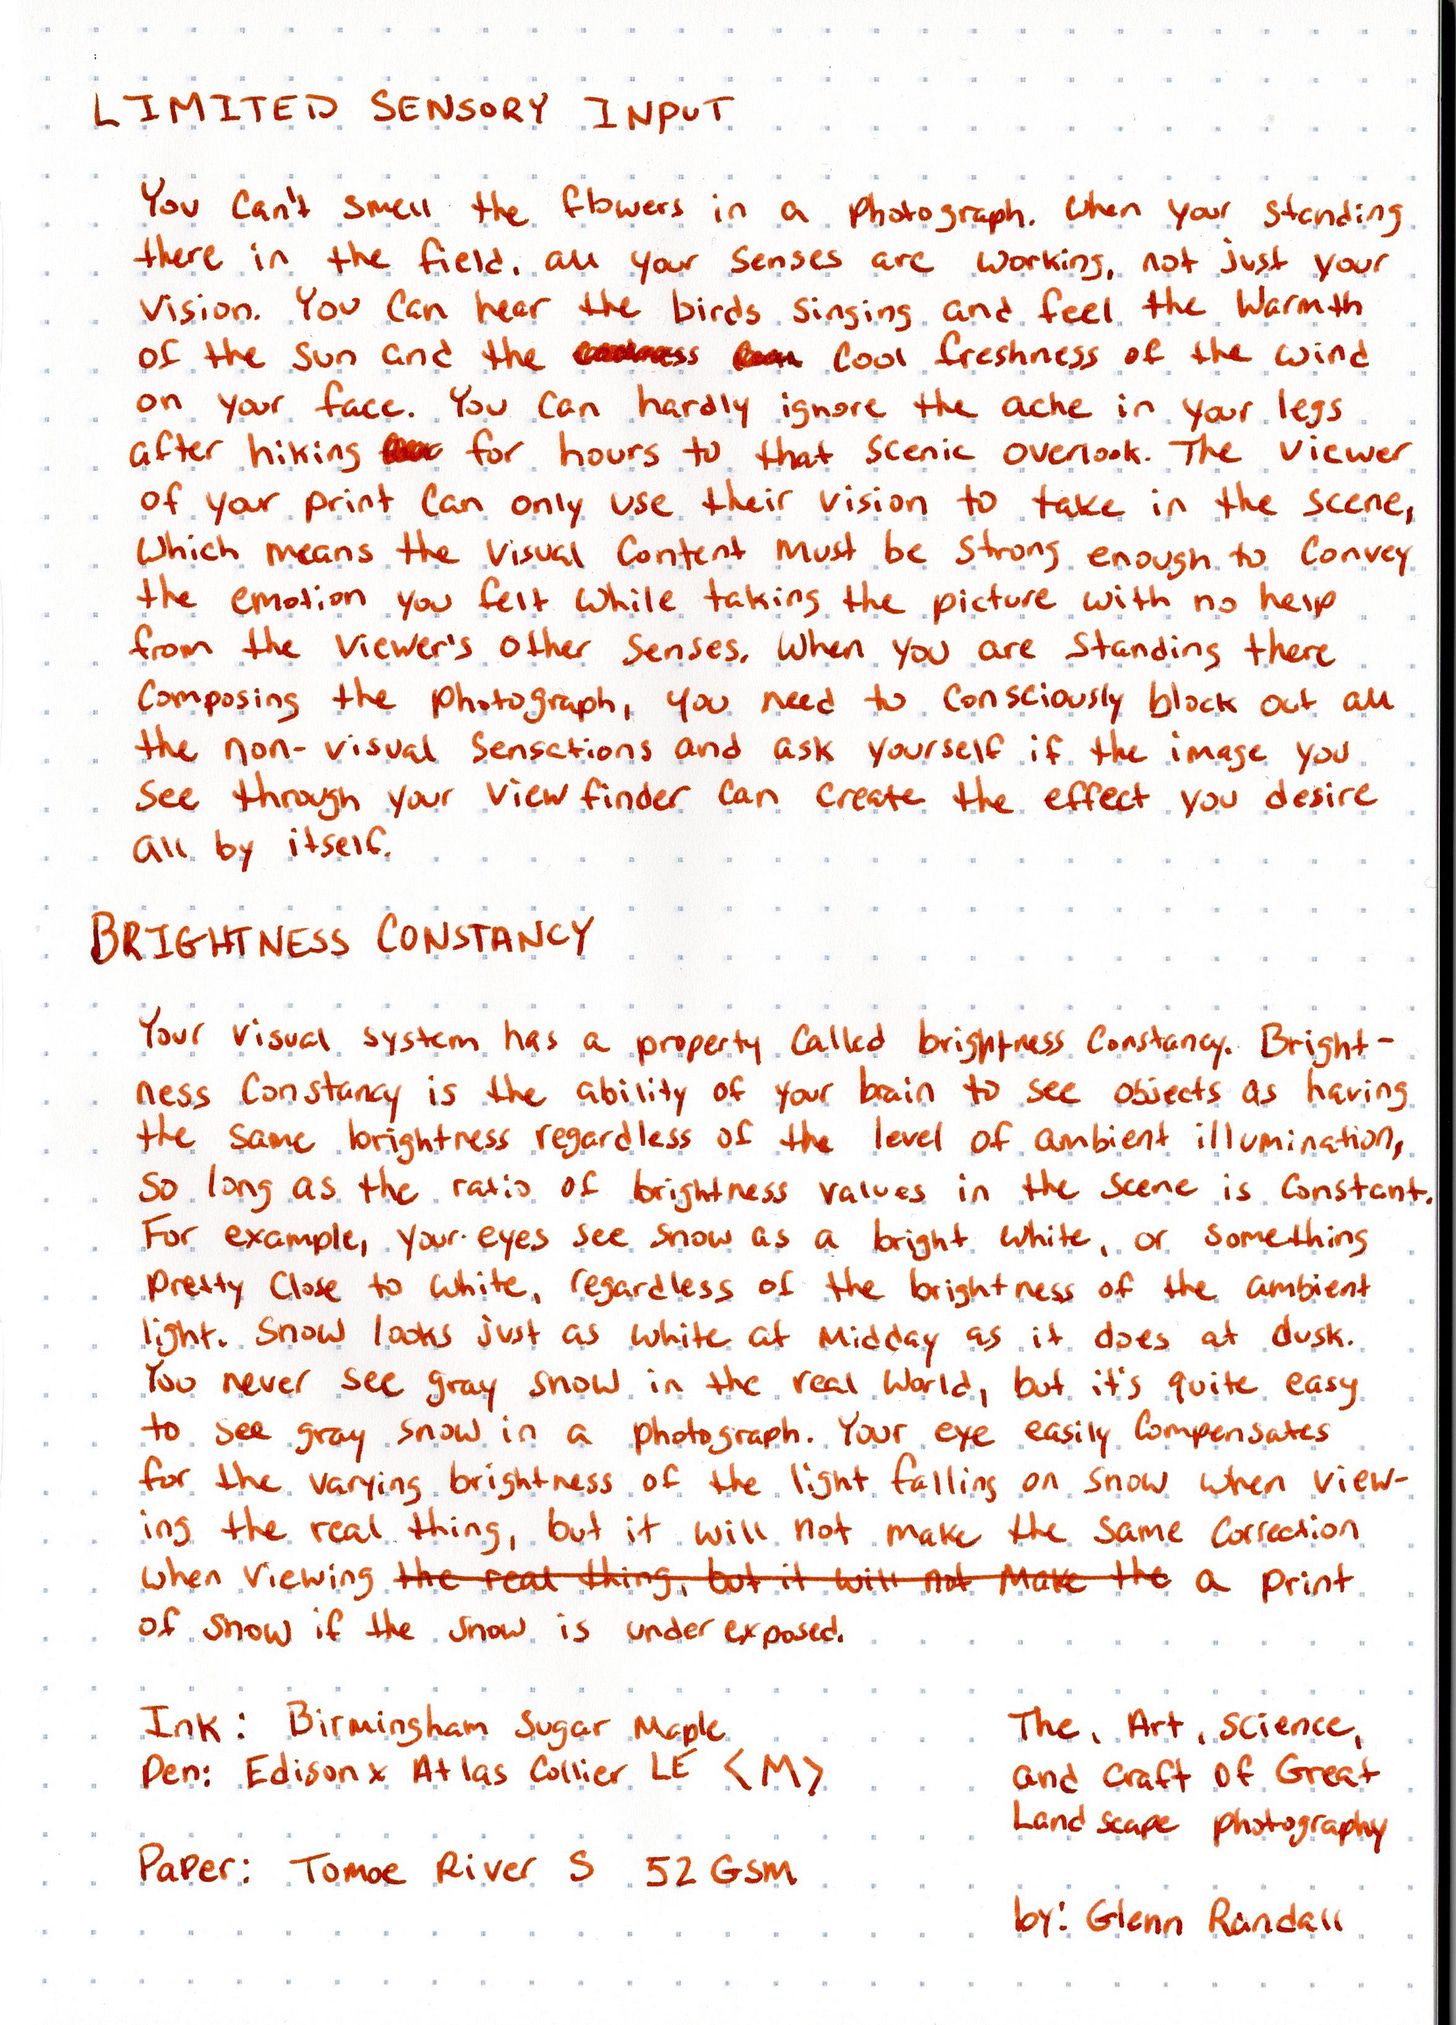 LIMITED SENSORY INPUT
You can't smell the flowers in a photograph. When your standing
there in the field, all your senses are working, not just your
vision. You can hear the birds singing and feel the warmth
of the sun and the cool freshness of the wind
on your face. You can hardly ignore the ache in your legs
after hiking for hours to that scenic overlook. The viewer
of your print can only use their vision to take in the scene,
which means the visual content must be strong enough to convey
the emotion you felt while taking the picture with no help
from the viewer's other senses. When you are standing there
composing the photograph, you need to consciously block out all
the non-visual sensations and ask yourself if the image you
see through your viewfinder can create the effect you desire
all by itself.
BRIGHTNESS CONSTANCY
Your visual system has a property called brightness constancy. Bright-
ness constancy is the ability of your brain to see objects as having
the same brightness regardless of the level of ambient illumination,
so long as the ratio of brightness values in the scene is constant.
For example, your eyes see snow as a bright white, or something
pretty close to white, regardless of the brightness of the ambient
light. Snow looks just as white at midday as it does at dusk.
You never see gray snow in the real world, but it's quite easy
to see gray snow in a photograph. Your eye easily compensates
for the varying brightness of the light falling on snow when view-
ing the real thing, but it will not make the same correction
when viewing the real thing, but it will not make the a print
of snow if the snow is under exposed.
Ink: Birmingham Sugar Maple
Pen: Edison x Atlas Collier LE <M>
Paper: Tomoe River S 52 GSM
The Art, Science,
and Craft of Great
Landscape photography
by: Glenn Randall